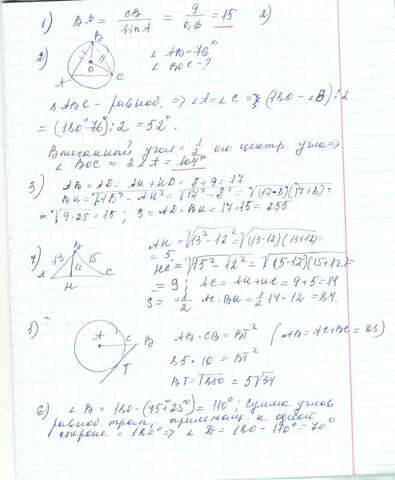 1) BA = CB/sinA = 9/0,6 = 15 2)
2) B
A O C
∠ AB = 76°
∠ BOC - ?
△ ABC - равноб. => ∠A = ∠C = (180 - ∠B) : 2
= (180° 76°) : 2 = 52°.
Вписанный угол = 1/2 его центр. угла =>
∠ BOC = 2∠A = 104°
3) AB = AD = AH + HD = 8 + 9 = 17
BH = √AB² - AH² = √17² - 8² = √(17-8)(17+8) =
= √9·25 = 15 ; S = AD · BH = 17·15 = 255
4) 13 B 15
A 12 C
H
AH = √13² - 12² = √(13-12)(13+12) =
= 5
HC = √15² - 12² = √(15-12)(15+12) =
= 9 ; AC = AH + HC = 9 + 5 = 14
S = 1/2 AC · BH = 1/2 14 · 12 = 84.
5) A C B
T
AB · CB = BT² (AB = AC + BC = 25)
25 · 10 = BT²
BT =
6) ∠ B = 180 - (45° + 25°) = 110° ; сумма углов
равноб. трап., прилежащ. к одной
стороне = 180° => ∠ D = 180 - 110° = 70°